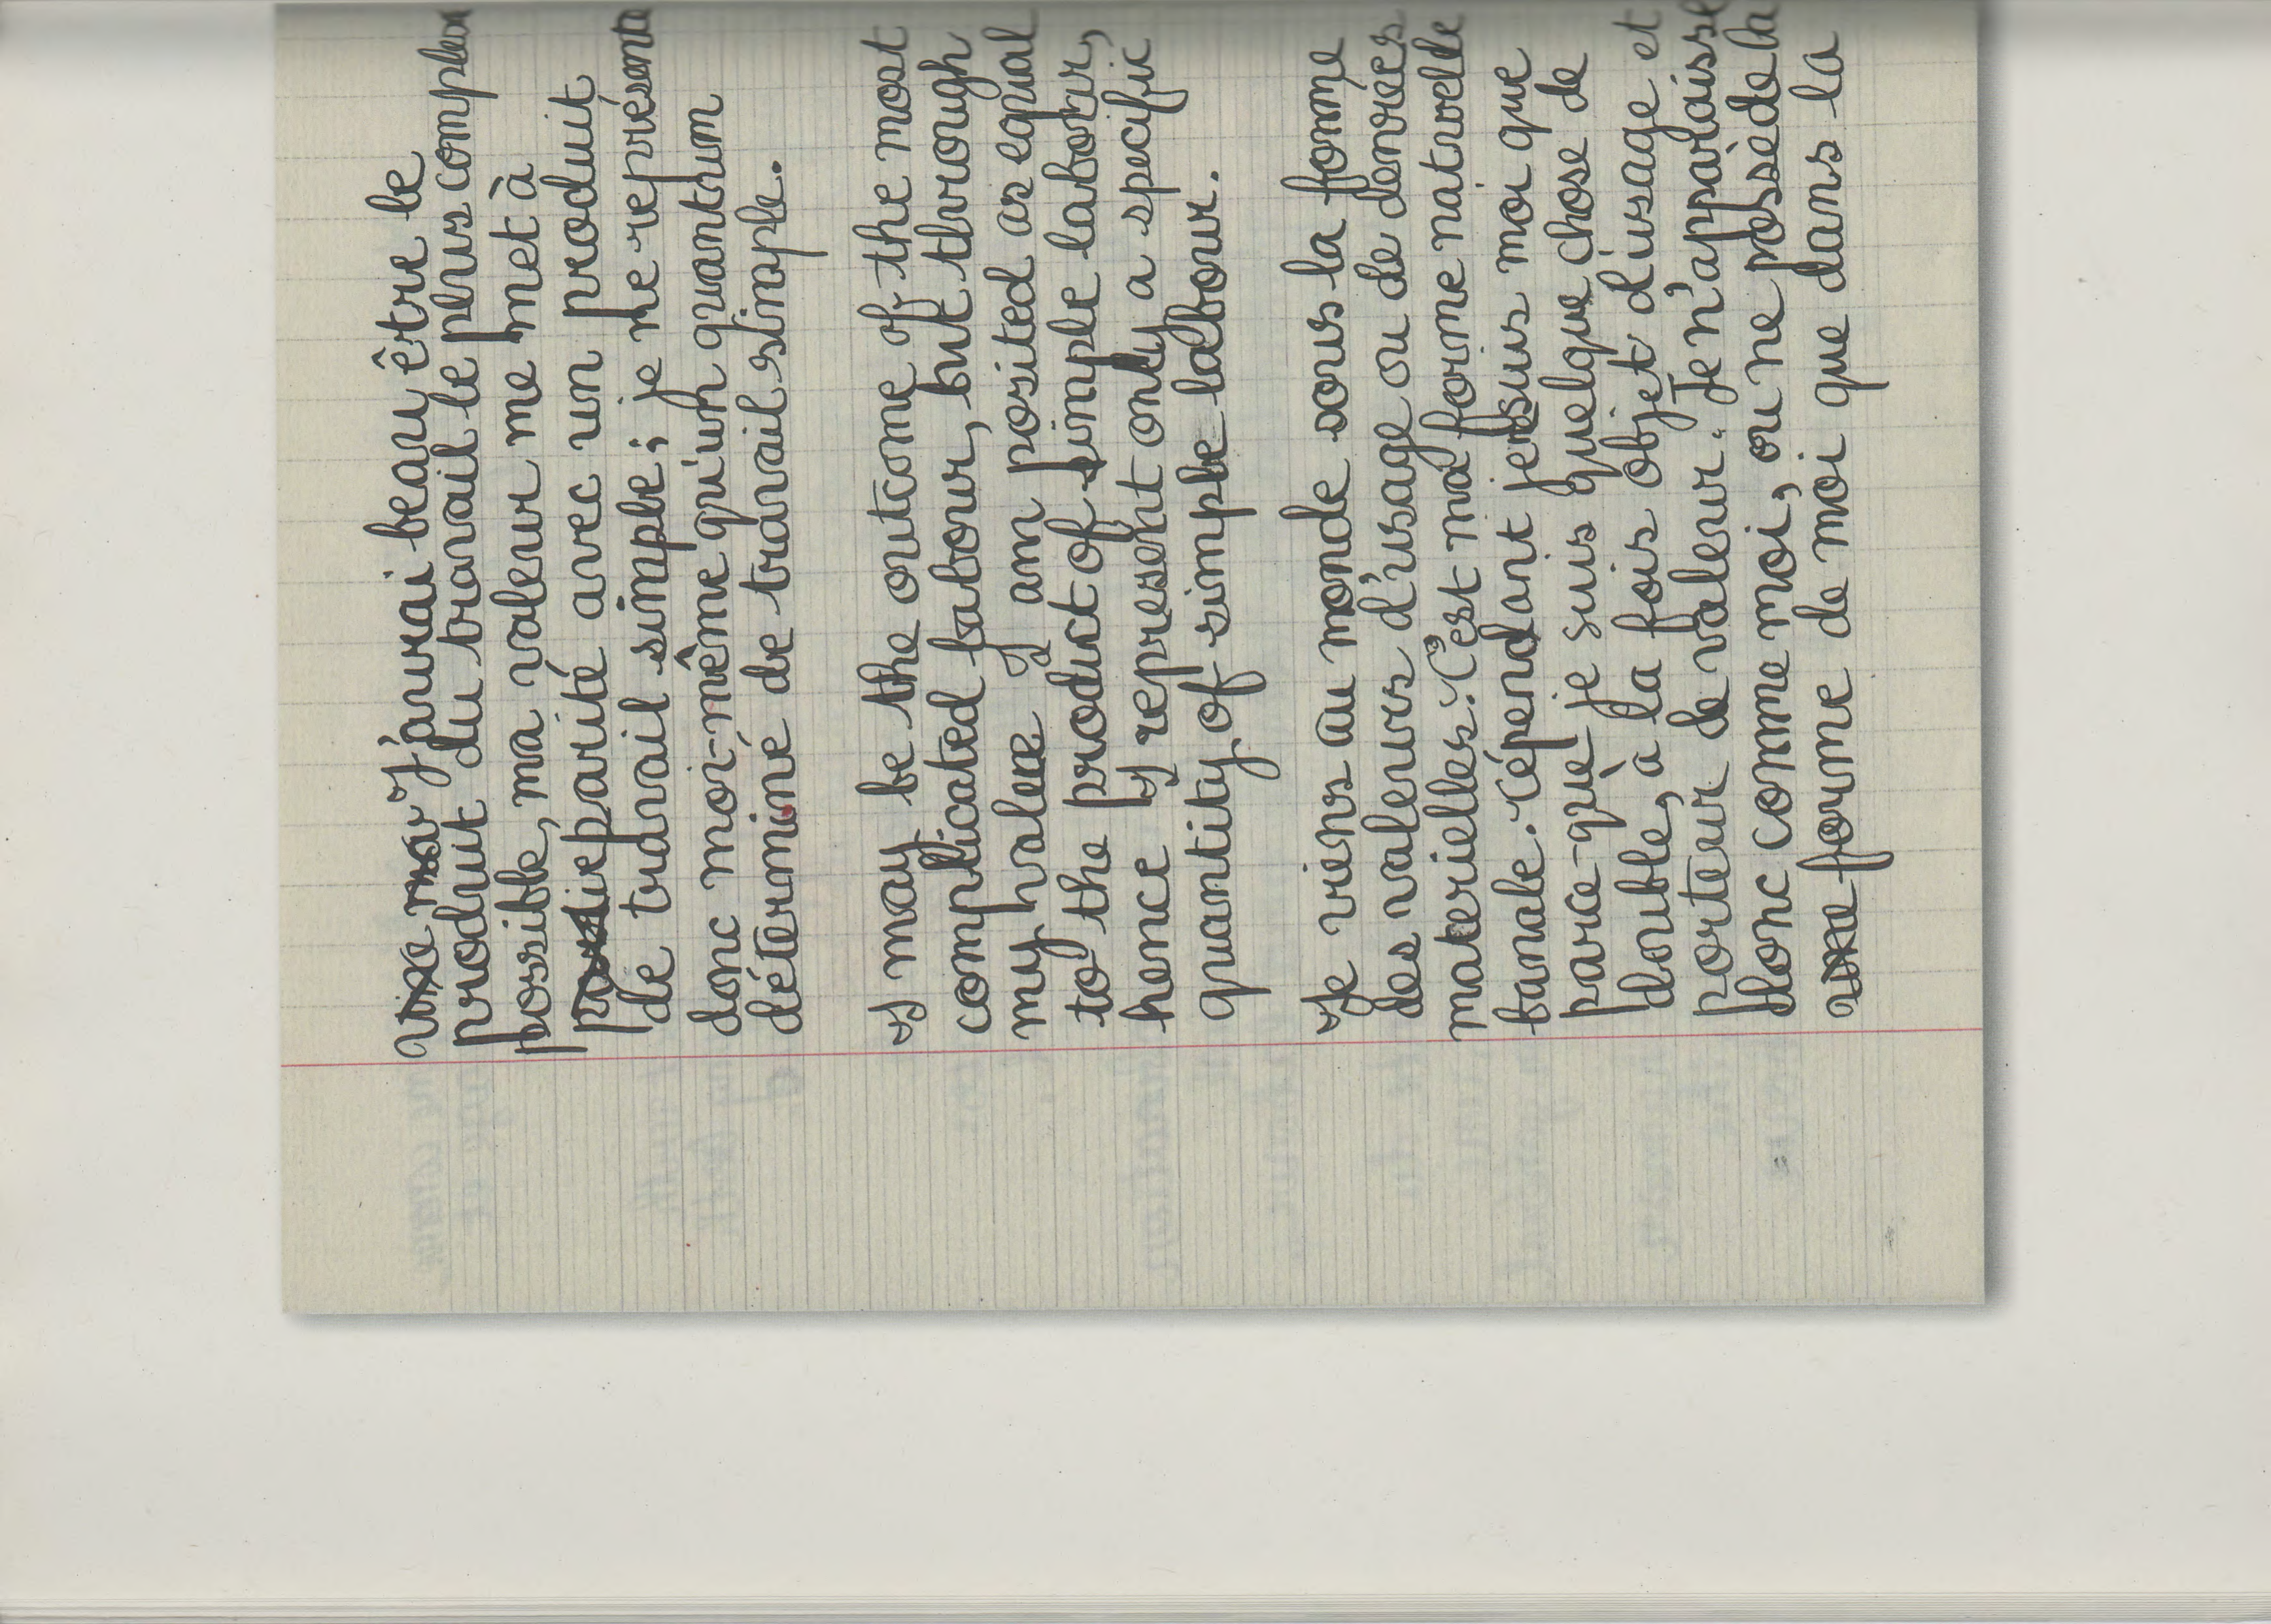 J'aurai beau être le
produit du travail le plus complexe
possible, ma valeur me met à
parité avec un produit
de travail simple ; je ne représente
donc moi-même qu'un quantum
déterminé de travail simple.
I may be the outcome of the most
complicated labour, but through
my value I am posited as equal
to the product of simple labour,
hence I represent only a specific
quantity of simple labour.
Je viens au monde sous la forme
des valeurs d'usage ou de denrées
materielles. C'est ma forme naturelle
banale. Cépendant je suis moi que
parce-que je suis quelque chose de
double, à la fois objet d'usage et
porteur de valeur. Je n'apparaisse
donc comme moi, ou ne possède la
forme de moi que dans la